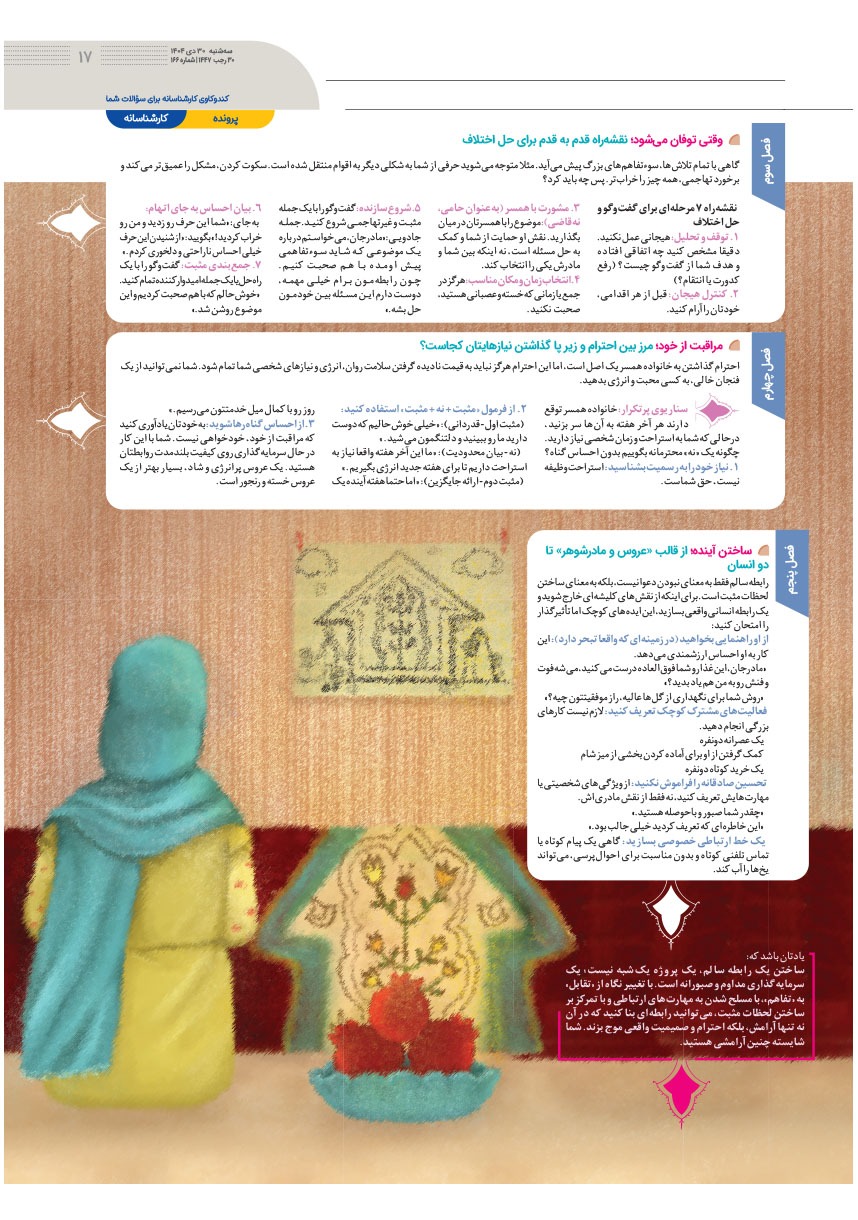 سه‌شنبه ۳۰ دی ۱۴۰۴
۳۰ رجب ۱۴۴۷ | شماره ۱۶۶
۱۷
کندوکاوی کارشناسانه برای سؤالات شما
پرونده
کارشناسانه
فصل سوم
وقتی توفان می‌شود؛ نقشه‌راه قدم به قدم برای حل اختلاف
گاهی با تمام تلاش‌ها، سوءتفاهم‌های بزرگ پیش می‌آید. مثلا متوجه می‌شوید حرفی از شما به شکلی دیگر به اقوام منتقل شده است. سکوت کردن، مشکل را عمیق‌تر می‌کند و
برخورد تهاجمی، همه چیز را خراب‌تر. پس چه باید کرد؟
نقشه‌راه ۷ مرحله‌ای برای گفت‌وگو و
حل اختلاف
۱. توقف و تحلیل: هیجانی عمل نکنید.
دقیقا مشخص کنید چه اتفاقی افتاده
و هدف شما از گفت‌وگو چیست؟ (رفع
کدورت یا انتقام؟)
۲. کنترل هیجان: قبل از هر اقدامی،
خودتان را آرام کنید.
۳. مشورت با همسر (به عنوان حامی،
نه قاضی): موضوع را با همسرتان در میان
بگذارید. نقش او حمایت از شما و کمک
به حل مسئله است، نه اینکه بین شما و
مادرش یکی را انتخاب کند.
۴. انتخاب زمان و مکان مناسب: هرگز در
جمع یا زمانی که خسته و عصبانی هستید،
صحبت نکنید.
۵. شروع سازنده: گفت‌وگو را با یک جمله
مثبت و غیرتهاجمی شروع کنید. جمله
جادویی: «مادرجان، می‌خواستم درباره
یک موضوعی که شاید سوءتفاهمی
پیش اومده با هم صحبت کنیم.
چون رابطه‌مون برام خیلی مهمه،
دوست دارم این مسئله بین خودمون
حل بشه.»
۶. بیان احساس به جای اتهام:
به جای: «شما این حرف رو زدید و من رو
خراب کردید!» بگویید: «از شنیدن این حرف
خیلی احساس ناراحتی و دلخوری کردم.»
۷. جمع‌بندی مثبت: گفت‌وگو را با یک
راه‌حل یا یک جمله امیدوارکننده تمام کنید.
«خوش حالم که با هم صحبت کردیم و این
موضوع روشن شد.»
فصل چهارم
مراقبت از خود؛ مرز بین احترام و زیر پا گذاشتن نیازهایتان کجاست؟
احترام گذاشتن به خانواده همسر یک اصل است، اما این احترام هرگز نباید به قیمت نادیده گرفتن سلامت روان، انرژی و نیازهای شخصی شما تمام شود. شما نمی‌توانید از یک
فنجان خالی، به کسی محبت و انرژی بدهید.
سناریوی پرتکرار: خانواده همسر توقع
دارند هر آخر هفته به آن‌ها سر بزنید،
درحالی که شما به استراحت و زمان شخصی نیاز دارید.
چگونه یک «نه» محترمانه بگوییم بدون احساس گناه؟
۱. نیاز خود را به رسمیت بشناسید: استراحت وظیفه
نیست، حق شماست.
۲. از فرمول «مثبت + نه + مثبت» استفاده کنید:
(مثبت اول-قدردانی): «خیلی خوش حالیم که دوست
دارید ما رو ببینید و دلتنگمون می‌شید.»
(نه - بیان محدودیت): «ما این آخر هفته واقعا نیاز به
استراحت داریم تا برای هفته جدید انرژی بگیریم.»
(مثبت دوم-ارائه جایگزین): «اما حتما هفته آینده یک
روز رو با کمال میل خدمتتون می‌رسیم.»
۳. از احساس گناه رها شوید: به خودتان یادآوری کنید
که مراقبت از خود، خودخواهی نیست. شما با این کار
در حال سرمایه گذاری روی کیفیت بلندمدت روابطتان
هستید. یک عروس پرانرژی و شاد، بسیار بهتر از یک
عروس خسته و رنجور است.
فصل پنجم
ساختن آینده؛ از قالب «عروس و مادرشوهر» تا
دو انسان
رابطه سالم فقط به معنای نبودن دعوا نیست، بلکه به معنای ساختن
لحظات مثبت است. برای اینکه از نقش‌های کلیشه‌ای خارج شوید و
یک رابطه انسانی واقعی بسازید، این ایده‌های کوچک اما تأثیرگذار
را امتحان کنید:
از او راهنمایی بخواهید (در زمینه‌ای که واقعا تبحر دارد): این
کار به او احساس ارزشمندی می‌دهد.
«مادرجان، این غذا رو شما فوق العاده درست می کنید، می‌شه فوت
و فنش رو به من هم یاد بدید؟»
«روش شما برای نگهداری از گل‌ها عالیه، راز موفقیتتون چیه؟»
فعالیت‌های مشترک کوچک تعریف کنید: لازم نیست کارهای
بزرگی انجام دهید.
یک عصرانه دونفره
کمک گرفتن از او برای آماده کردن بخشی از میز شام
یک خرید کوتاه دونفره
تحسین صادقانه را فراموش نکنید: از ویژگی‌های شخصیتی یا
مهارت‌هایش تعریف کنید، نه فقط از نقش مادری‌اش.
«چقدر شما صبور و باحوصله هستید.»
«این خاطره‌ای که تعریف کردید خیلی جالب بود.»
یک خط ارتباطی خصوصی بسازید: گاهی یک پیام کوتاه یا
تماس تلفنی کوتاه و بدون مناسبت برای احوال‌پرسی، می‌تواند
یخ‌ها را آب کند.
یادتان باشد که:
ساختن یک رابطه سالم، یک پروژه یک‌شبه نیست؛ یک
سرمایه گذاری مداوم و صبورانه است. با تغییر نگاه از «تقابل»
به «تفاهم»، با مسلح شدن به مهارت‌های ارتباطی و با تمرکز بر
ساختن لحظات مثبت، می‌توانید رابطه‌ای بنا کنید که در آن
نه تنها آرامش، بلکه احترام و صمیمیت واقعی موج بزند. شما
شایسته چنین آرامشی هستید.